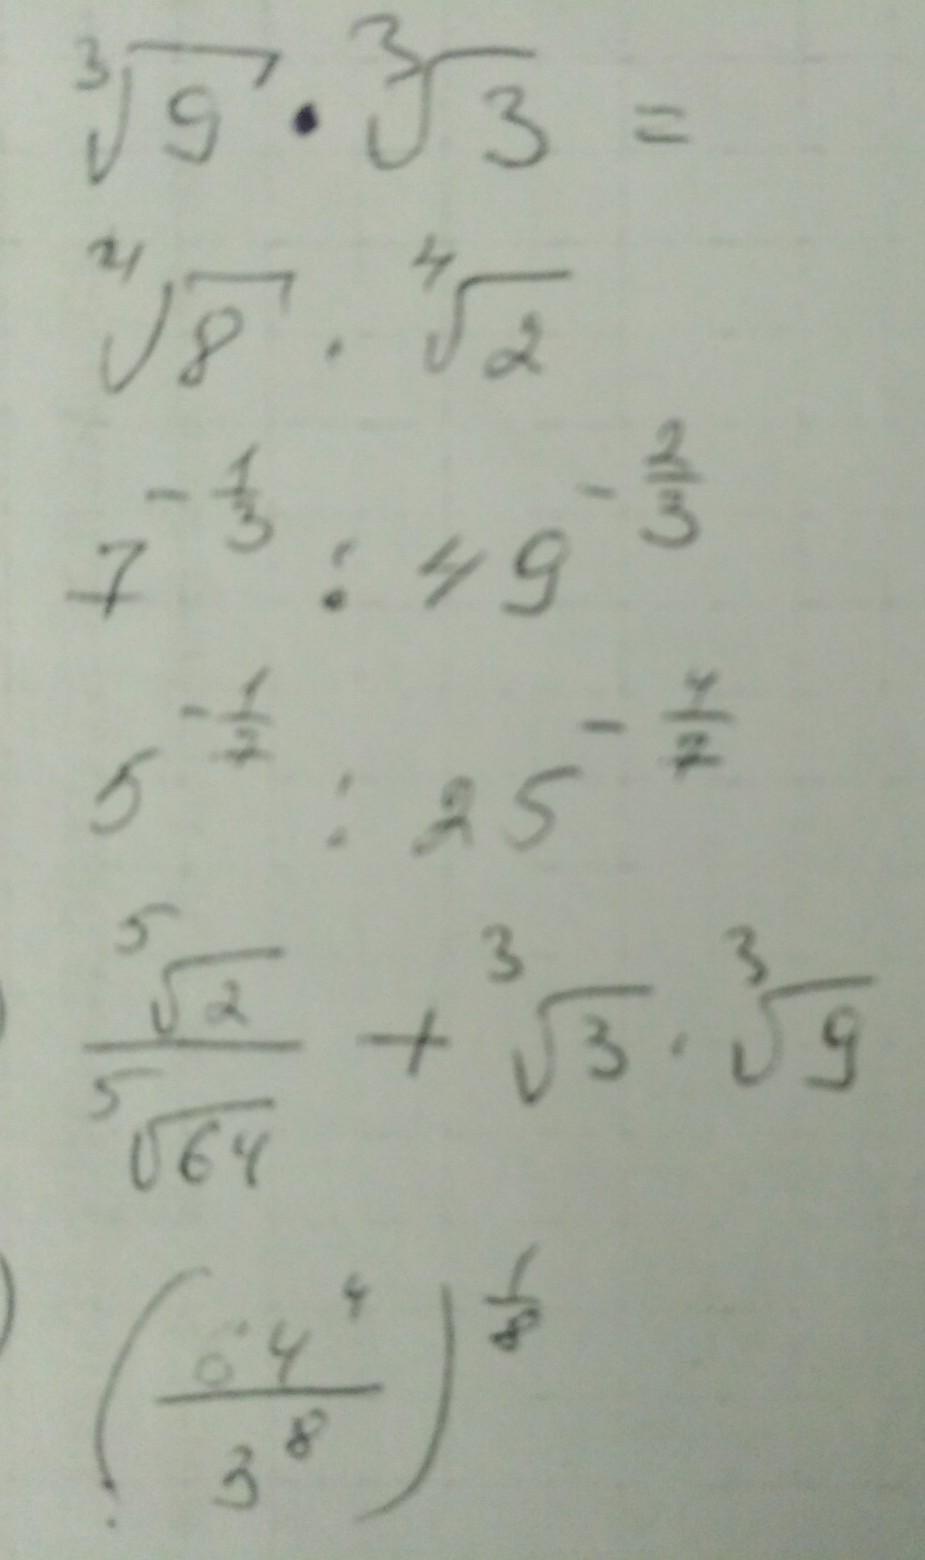 ∛9 · ∛3 =
∜8 · ∜2
7^(-1/3) : 49^(-2/3)
5^(-1/7) : 25^(-4/7)
⁵√2 / ⁵√64 + ∛3 · ∛9
(4^4 / 3^8)^(1/8)